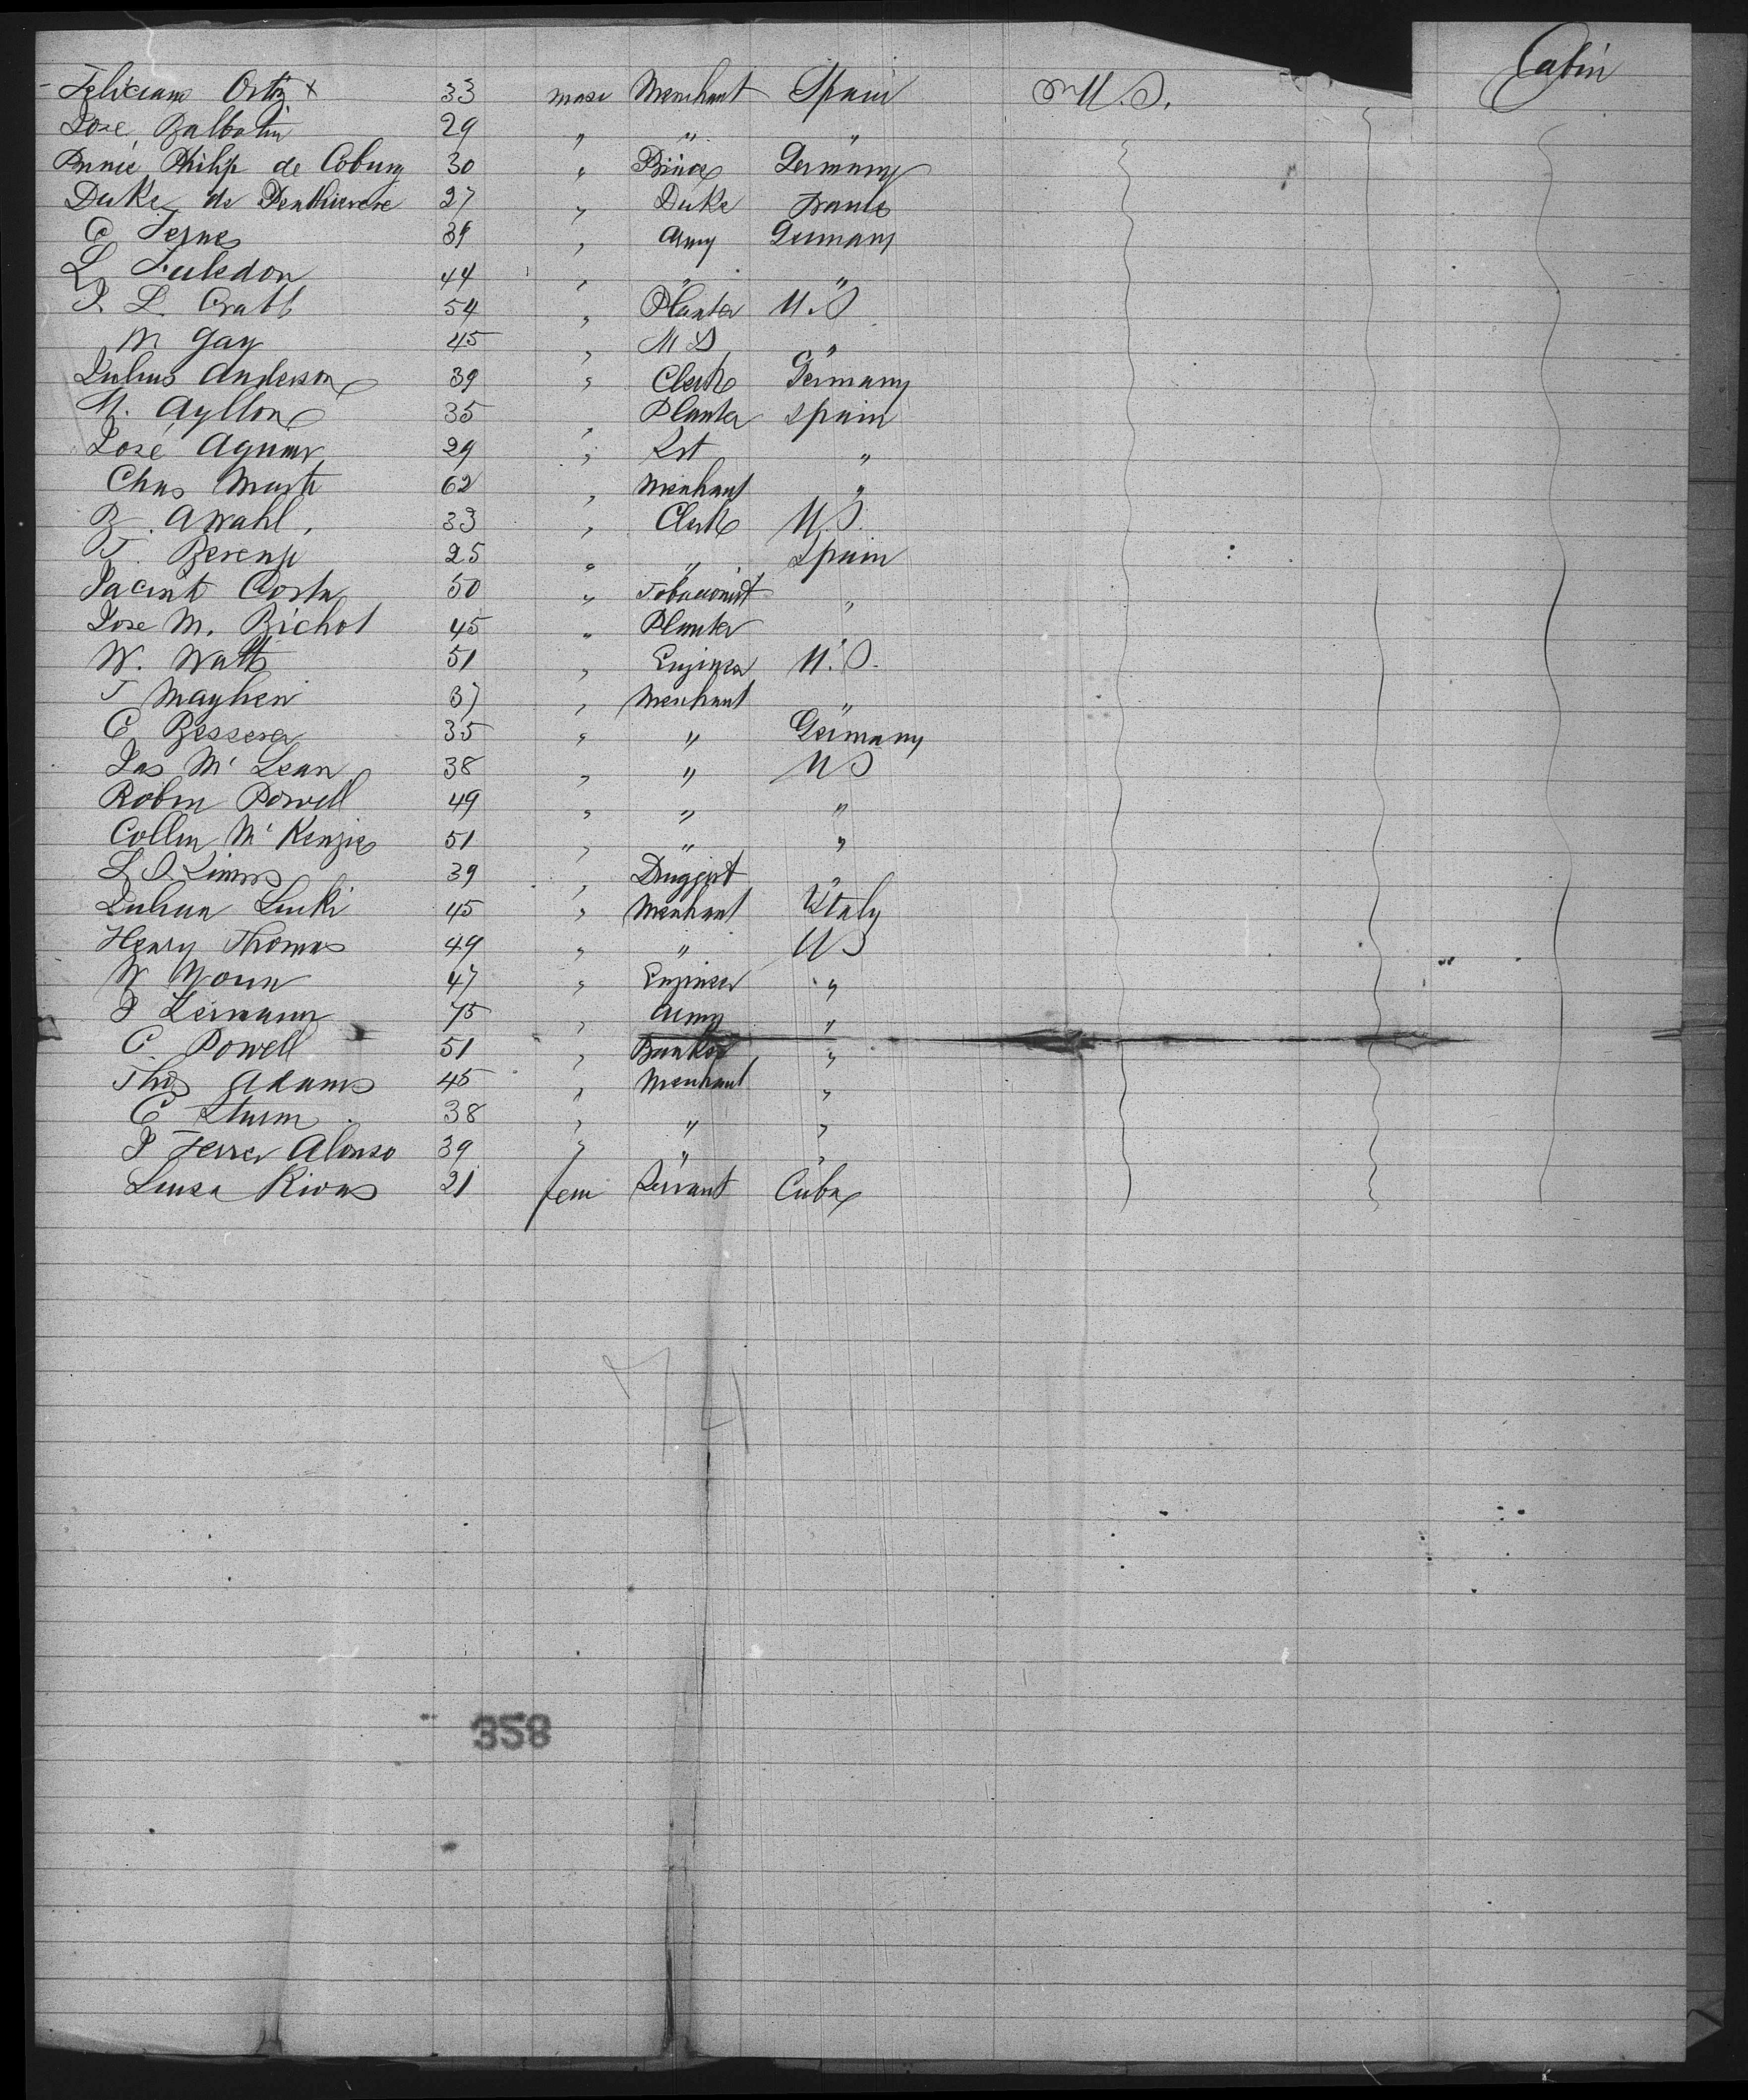 Cabin
Feliciano Ortiz x 33 masc Merchant Spain U.S.
Jose Balbotin 29 " " "
Prince Philip de Coburg 30 " Prince Germany
Duke de Penthievere 27 " Duke France
C Fernes 39 " Army Germany
L 44 " " "
J. L. Crabb 54 " Planter U.S
M Gay 45 " M D "
Julius Anderson 39 " Clerk Germany
M. Ayllon 35 " Planter Spain
José Aguiar 29 " "
Chas Marti 62 " Merchant "
B. A Wahl. 33 " Clerk U.S.
T. 25 " " Spain
Jacinto Costa 50 " Tobacconist "
Jose M. Bichot 45 " Planter
W. Watts 51 " Engineer U.S.
T Mayhew 37 " Merchant "
C Bessera 35 " " Germany
Jas Mc Lean 38 " " US
Robin Powell 49 " " "
Collin Mc Kenzie 51 " " "
L. S. Simms 39 " Druggist "
Julian Luski 45 " Merchant Italy
Henry Thomas 49 " " US
W 47 " Engineer "
J Lermann 75 " Army "
C. Powell 51 " Banker "
Thos Adams 45 " Merchant "
C Sturm 38 " " "
J Ferrer Alonso 39 " " "
Luisa Rivas 21 fem Servant Cuba
74
358